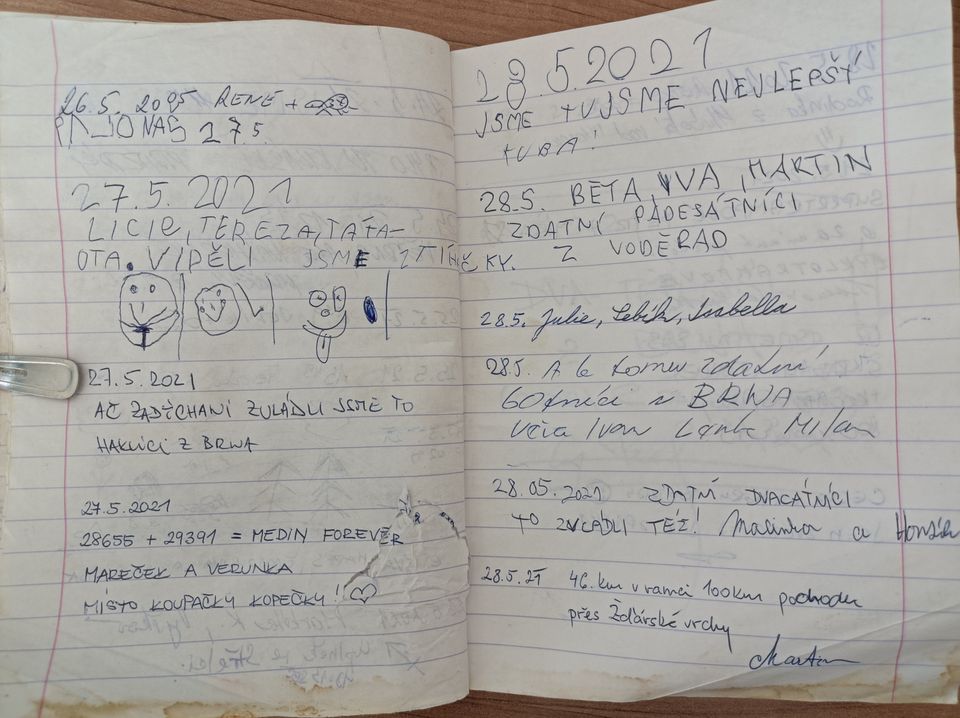 26.5. 2095 RENÉ +
27.5.
27.5. 2021
LICIE, TEREZA, TÁŤA-
OTA. VIDĚLI JSME 2 TIHČKY.
27.5.2021
AČ ZADÝCHANÍ ZVLÁDLI JSME TO
HAKLÍCI Z BRNA
27.5.2021
28655 + 29391 = MEDIN FOREVER
MAREČEK A VERUNKA
MÍSTO KOUPAČKY KOPEČKY!
28.5.2021
JSME TU JSME NEJLEPŠÍ
TUBA!
28.5. BĚTA, IVA, MARTIN
ZDATNÍ PADESÁTNÍCI
Z VODĚRAD
28.5. Julie, Isabella
28.5. A k tomu zdatní
60tníci z BRNA
Věra Ivan Lenka Milan
28.05.2021 ZDATNÍ DVACÁTNÍCI
TO ZVLÁDLI TÉŽ! Mařinka a Honzík
28.5.21 46. km v rámci 100km pochodu
přes Žďárské vrchy
Martin